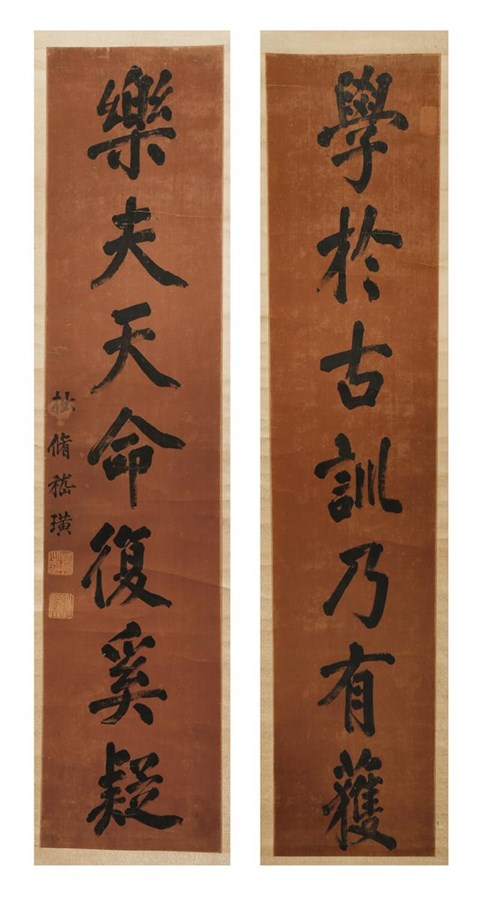 學於古訓乃有蒦
樂夫天命復奚疑
拙脩嵇璜